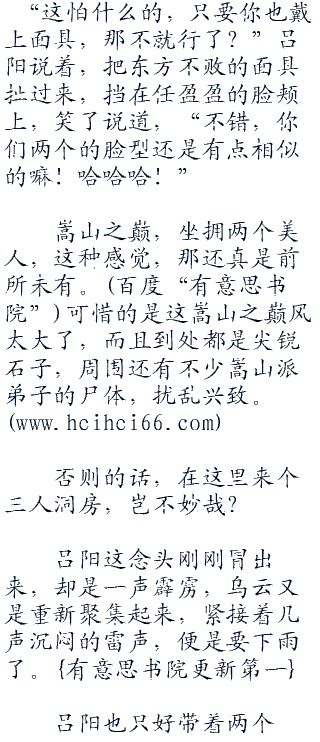 “这怕什么的，只要你也戴
上面具，那不就行了？”吕
阳说着，把东方不败的面具
扯过来，挡在任盈盈的脸颊
上，笑了说道，“不错，你
们两个的脸型还是有点相似
的嘛！哈哈哈！”
嵩山之巅，坐拥两个美
人，这种感觉，那还真是前
所未有。(百度“有意思书
院”)可惜的是这嵩山之巅风
太大了，而且到处都是尖锐
石子，周围还有不少嵩山派
弟子的尸体，扰乱兴致。
(www.hcihci66.com)
否则的话，在这里来个
三人洞房，岂不妙哉？
吕阳这念头刚刚冒出
来，却是一声霹雳，乌云又
是重新聚集起来，紧接着几
声沉闷的雷声，便是要下雨
了。{有意思书院更新第一}
吕阳也只好带着两个